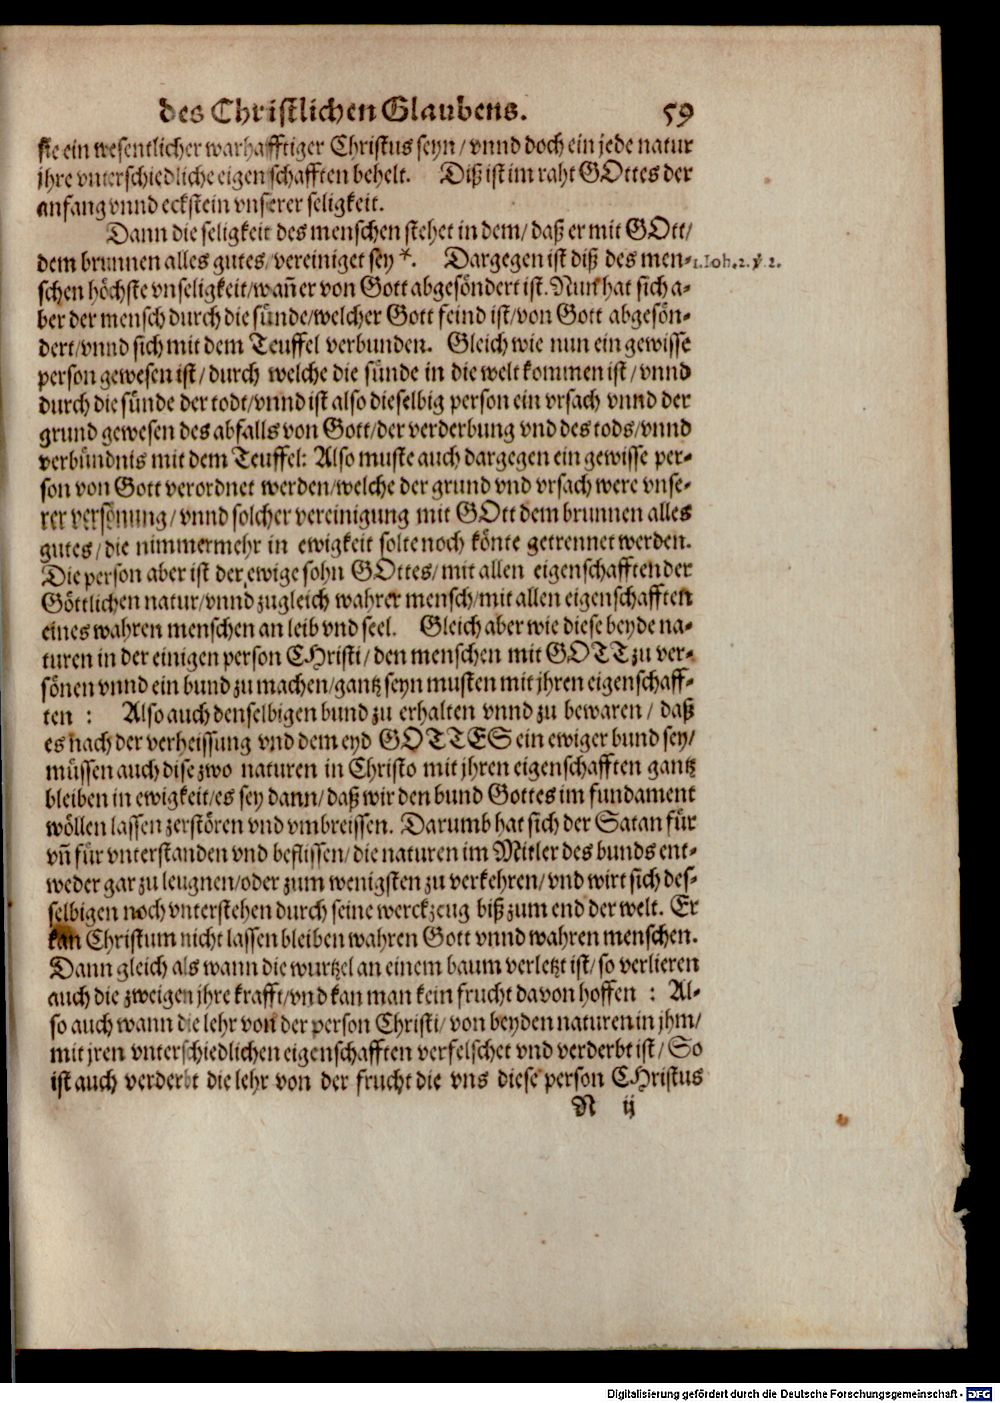 des Christlichen Glaubens. 59
sie ein wesentlicher warhafftiger Christus seyn / vnnd doch ein jede natur
jhre vnterschiedliche eigenschafften behelt. Diß ist im raht GOttes der
anfang vnnd eckstein vnserer seligkeit.
Dann die seligkeit des menschen stehet in dem / daß er mit GOtt /
dem brunnen alles gutes / vereiniget sey *. Dargegen ist diß des men-
1. Ioh. 2. ℣. 2.
schen höchste vnseligkeit / wañ er von Gott abgesöndert ist. Nun hat sich a-
ber der mensch durch die sünde / welcher Gott feind ist / von Gott abgesön-
dert / vnnd sich mit dem Teuffel verbunden. Gleich wie nun ein gewisse
person gewesen ist / durch welche die sünde in die welt kommen ist / vnnd
durch die sünde der todt / vnnd ist also dieselbig person ein vrsach vnnd der
grund gewesen des abfalls von Gott / der verderbung vnd des tods / vnnd
verbündnis mit dem Teuffel: Also muste auch dargegen ein gewisse per-
son von Gott verordnet werden / welche der grund vnd vrsach were vnse-
rer versönung / vnnd solcher vereinigung mit GOtt dem brunnen alles
gutes / die nimmermehr in ewigkeit solte noch könte getrennet werden.
Die person aber ist der ewige sohn GOttes / mit allen eigenschafften der
Göttlichen natur / vnnd zugleich wahrer mensch / mit allen eigenschafften
eines wahren menschen an leib vnd seel. Gleich aber wie diese beyde na-
turen in der einigen person CHristi / den menschen mit GOTT zu ver-
sönen vnnd ein bund zu machen / gantz seyn musten mit jhren eigenschaff-
ten : Also auch denselbigen bund zu erhalten vnnd zu bewaren / daß
es nach der verheissung vnd dem eyd GOTTES ein ewiger bund sey /
müssen auch dise zwo naturen in Christo mit jhren eigenschafften gantz
bleiben in ewigkeit / es sey dann / daß wir den bund Gottes im fundament
wöllen lassen zerstören vnd vmbreissen. Darumb hat sich der Satan für
vñ für vnterstanden vnd beflissen / die naturen im Mitler des bunds ent-
weder gar zu leugnen / oder zum wenigsten zu verkehren / vnd wirt sich des-
selbigen noch vnterstehen durch seine werckzeug biß zum end der welt. Er
kan Christum nicht lassen bleiben wahren Gott vnnd wahren menschen.
Dann gleich als wann die wurtzel an einem baum verletzt ist / so verlieren
auch die zweigen jhre krafft / vnd kan man kein frucht davon hoffen : Al-
so auch wann die lehr von der person Christi / von beyden naturen in jhm /
mit jren vnterschiedlichen eigenschafften verfelschet vnd verderbt ist / So
ist auch verderbt die lehr von der frucht die vns diese person CHristus
N ij
Digitalisierung gefördert durch die Deutsche Forschungsgemeinschaft - DFG